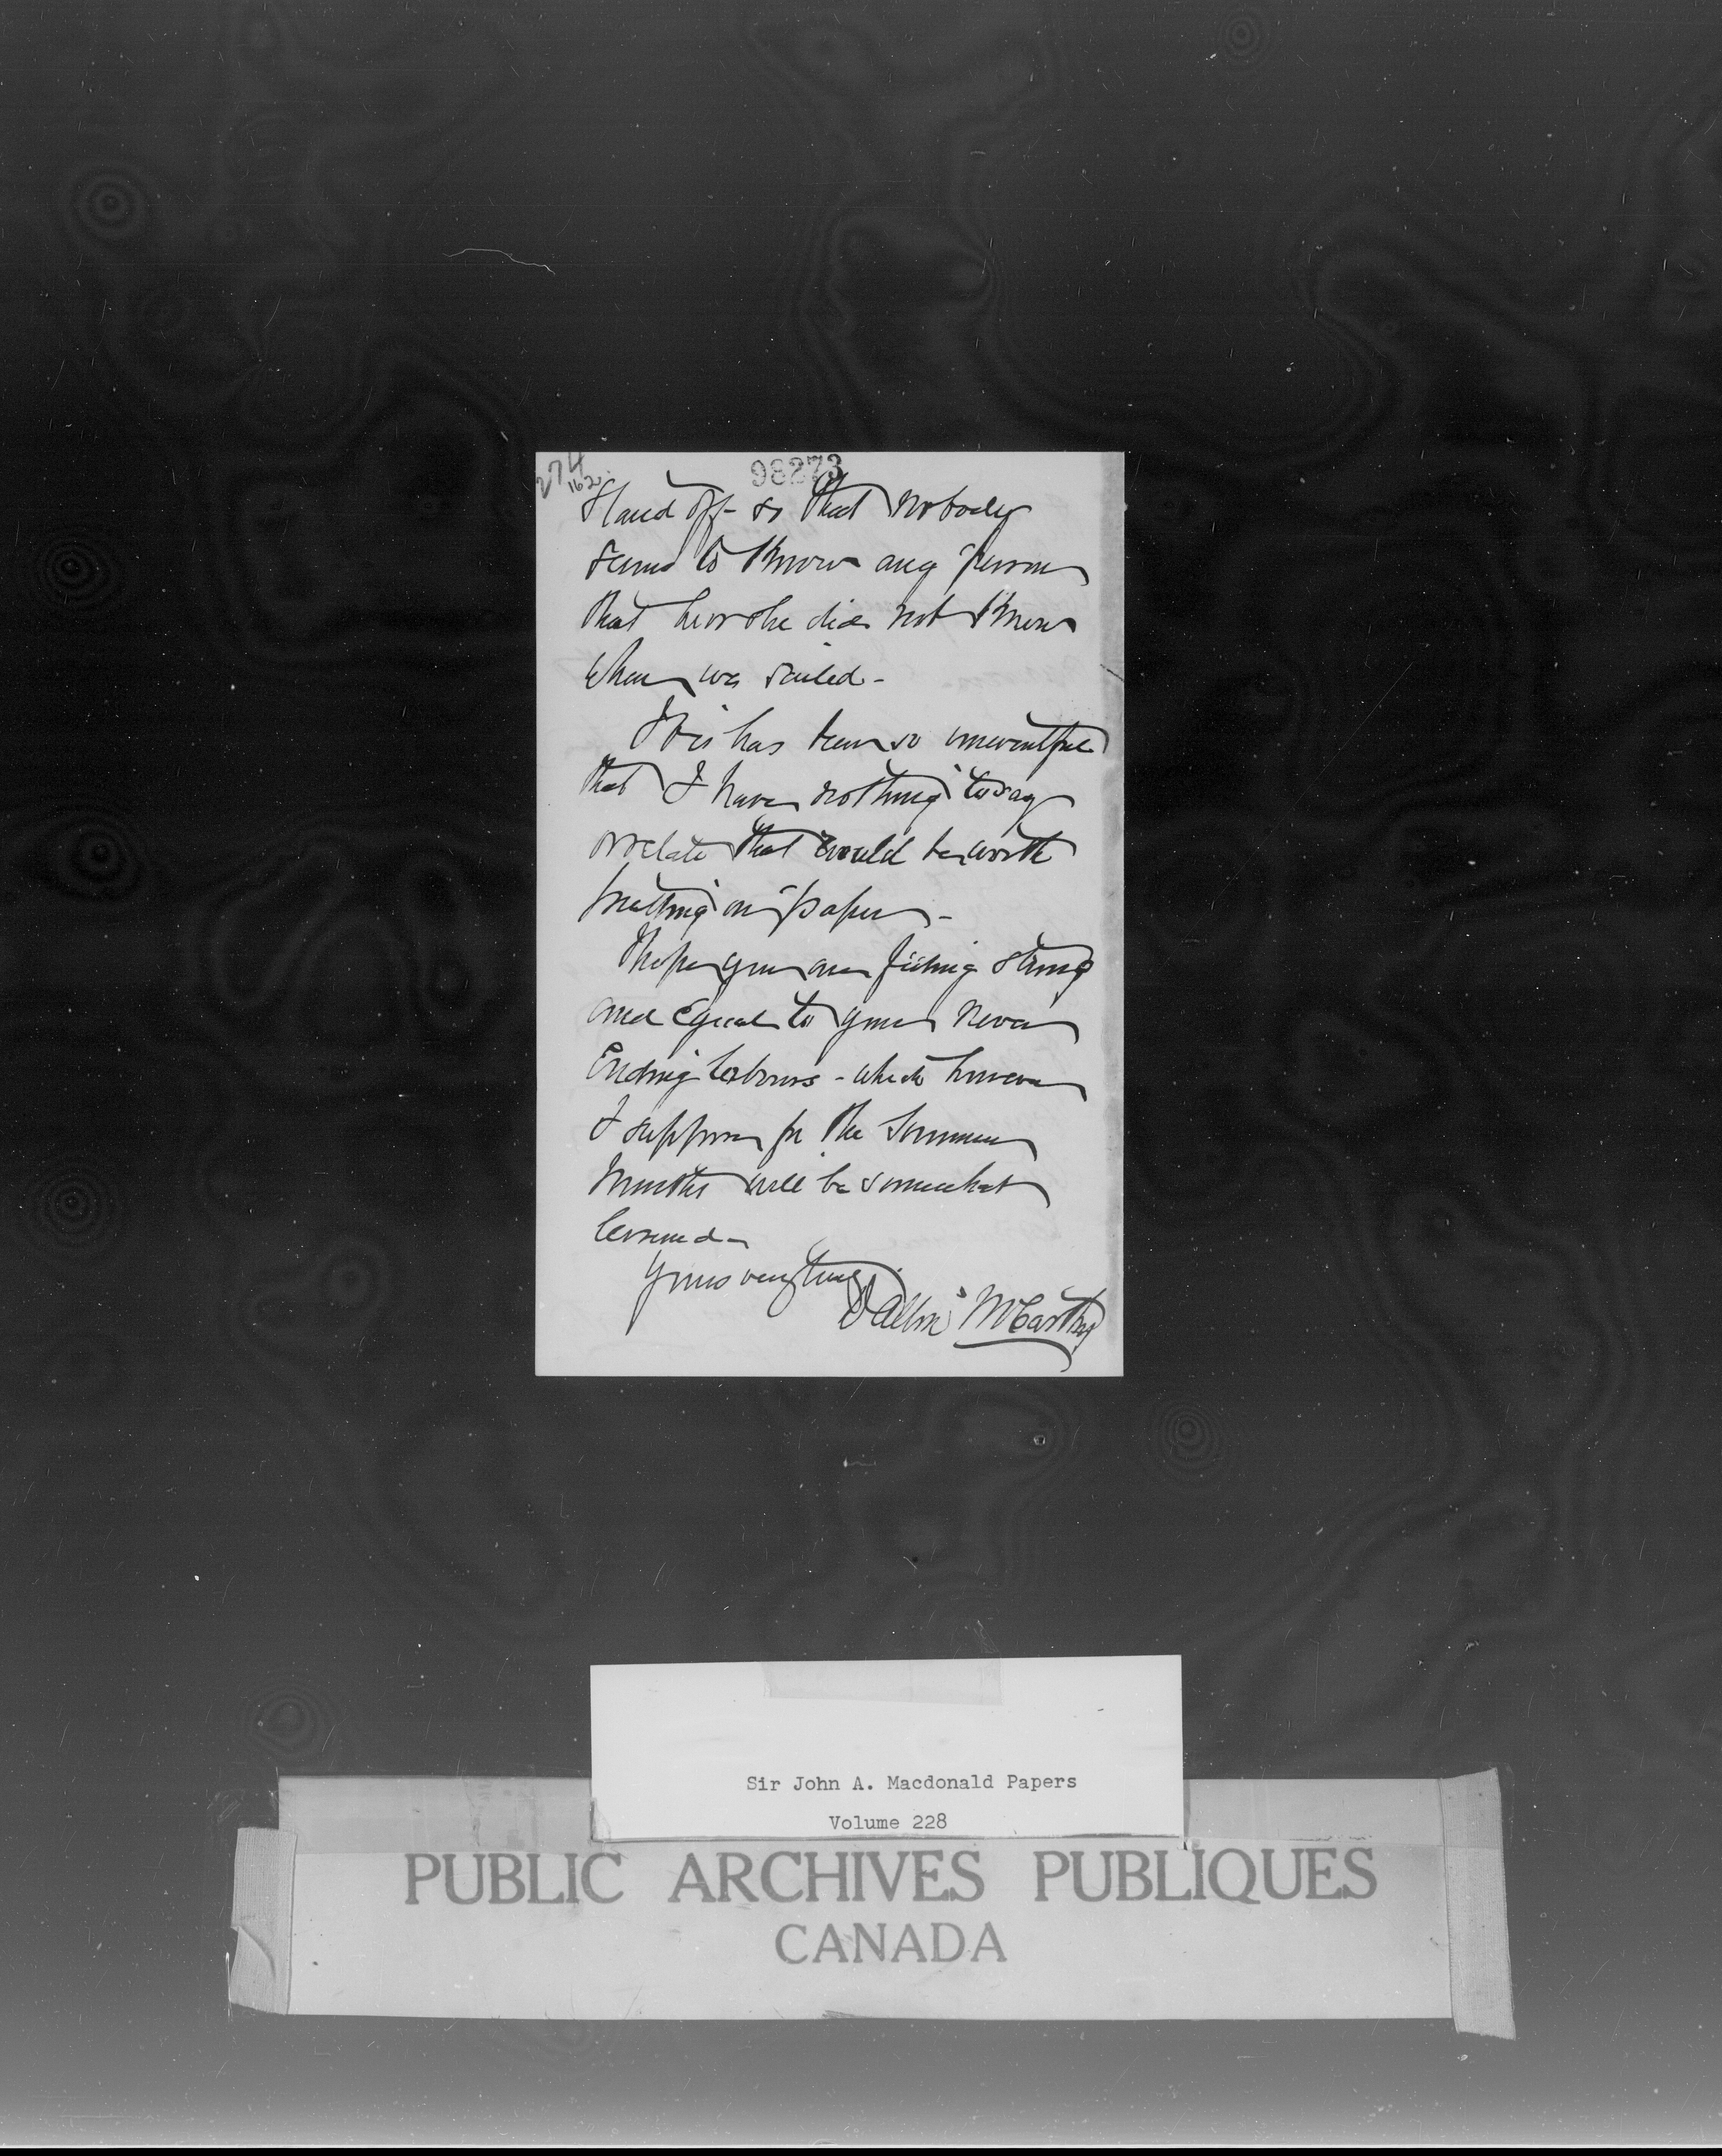 274
162
98273
Stand off - so that nobody
seems to know any person
that he or she did not know
when we sailed -
It is has been so uneventful
that I have nothing to say
or relate that would be worth
putting on paper -
I hope you are feeling strong
and equal to your never
Ending labours - which however
I suppose for the Summer
Months will be somewhat
lessened -
Yours very truly
Dalton McCarthy
Sir John A. Macdonald Papers
Volume 228
PUBLIC ARCHIVES PUBLIQUES
CANADA